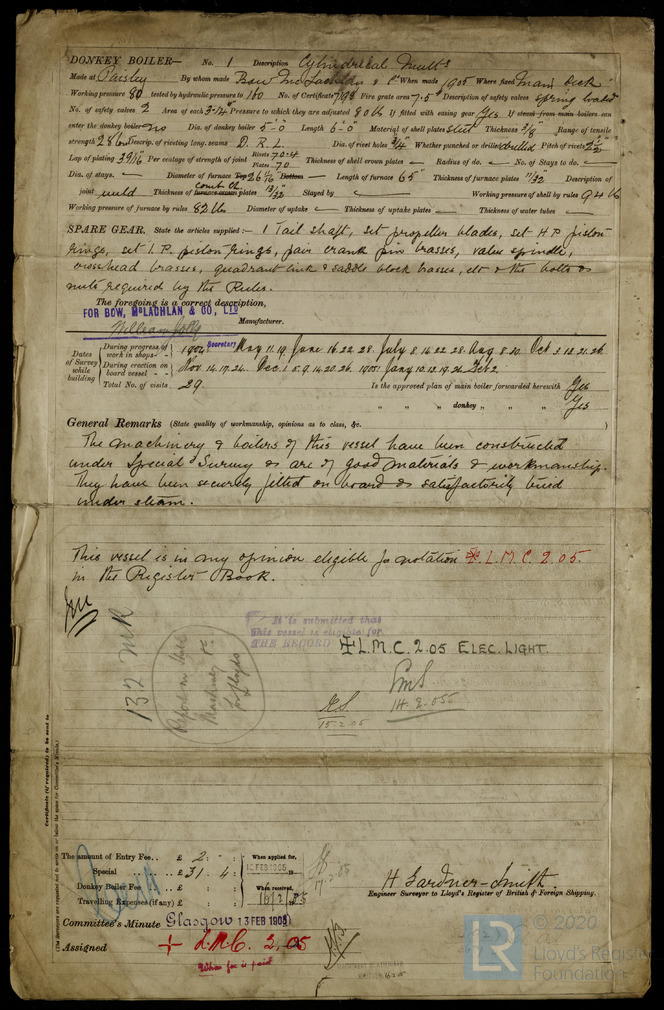 DONKEY BOILER— No. 1 Description Cylindrical Multr
Made at Paisley By whom made Bow McLachlan & Co When made 1905 Where fixed Main Deck
Working pressure 80 tested by hydraulic pressure to 160 No. of Certificate 7198 Fire grate area 7.5 Description of safety valves Spring load
No. of safety valves 2 Area of each 3.14 Pressure to which they are adjusted 80 lb If fitted with easing gear Yes If steam from main boilers can
enter the donkey boiler no Dia. of donkey boiler 5'-0" Length 6'-0" Material of shell plates Steel Thickness 3/8 Range of tensile
strength 28 tons Descrip. of riveting long. seams D. R. L. Dia. of rivet holes 3/4 Whether punched or drilled drilled Pitch of rivets 2 1/2
Lap of plating 3 9/16 Per centage of strength of joint Rivets 70.4 Plates 70 Thickness of shell crown plates — Radius of do. — No. of Stays to do. —
Dia. of stays. — Diameter of furnace Top 26 1/16 Bottom — Length of furnace 65" Thickness of furnace plates 11/32 Description of
joint weld Thickness of furnace crown plates comb. ch. 13/32 Stayed by — Working pressure of shell by rules 94 lb
Working pressure of furnace by rules 82 lb Diameter of uptake — Thickness of uptake plates — Thickness of water tubes —
SPARE GEAR. State the articles supplied:— 1 Tail shaft, set propeller blades, set H.P. piston
rings, set I.P. piston rings, pair crank pin brasses, valve spindle,
crosshead brasses, quadrant link & saddle block brasses, etc & the bolts &
nuts required by the Rules.
The foregoing is a correct description,
FOR BOW, McLACHLAN & CO., LTD
Manufacturer.
Secretary
Dates of Survey while building
During progress of work in shops - - 1904 May 11. 19. June 16. 22. 28. July 8. 14. 22. 28. Aug 8. 30. Oct 3. 12. 21. 26
During erection on board vessel - - - Nov 14. 17. 24. Dec. 1. 8. 9. 14. 20. 26. 1905. Jany 10. 12. 19. 26. Feb 2
Total No. of visits 29 Is the approved plan of main boiler forwarded herewith Yes
" " " donkey " " " Yes
General Remarks (State quality of workmanship, opinions as to class, &c.)
The machinery & boilers of this vessel have been constructed
under Special Survey & are of good materials & workmanship.
They have been securely fitted on board & satisfactorily tried
under steam.
This vessel is in my opinion eligible for notation ✠ L.M.C. 2.05.
in the Register Book.
132
Report on
Machinery
It is submitted that
this vessel is eligible for
THE RECORD ✠ L.M.C. 2.05 ELEC. LIGHT.
15.2.05
Certificate (if required) to be sent to
The amount of Entry Fee.. £ 2 : - :
Special .. .. £ 31 . 4 :
Donkey Boiler Fee .. .. £ : :
Travelling Expenses (if any) £ : :
When applied for,
13 FEB 1905
When received,
16/2/05
17.2.05
H Gardner-Smith.
Engineer Surveyor to Lloyd's Register of British & Foreign Shipping.
Committee's Minute Glasgow 13 FEB 1905
Assigned + L.M.C. 2,05
When fee is paid
LR
© 2020
Lloyd's Register
Foundation